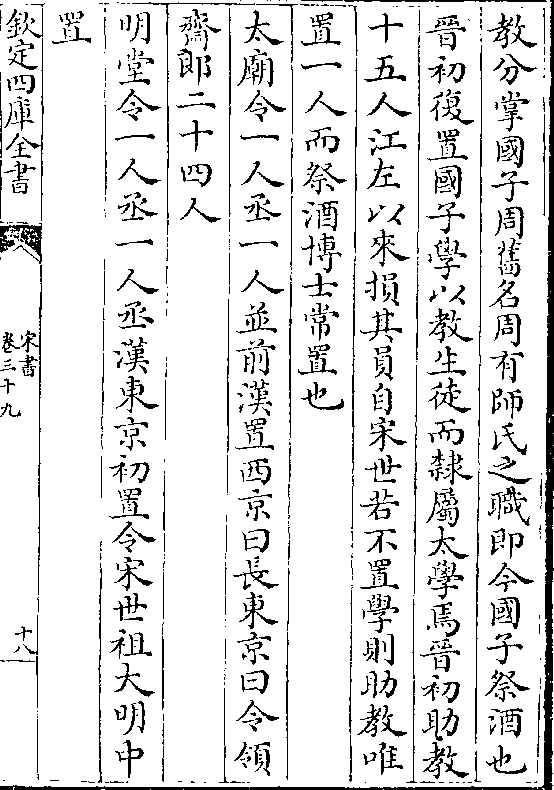 教分掌國子周舊名周有師氏之職即今國子祭酒也
晉初復置國子學以教生徒而隸屬太學焉晉初助教
十五人江左以來損其員自宋世若不置學則助教唯
置一人而祭酒博士常置也
太廟令一人丞一人並前漢置西京曰長東京曰令領
齋郎二十四人
明堂令一人丞一人丞漢東京初置令宋世祖大明中
置
欽定四庫全書
宋書
卷三十九
十八